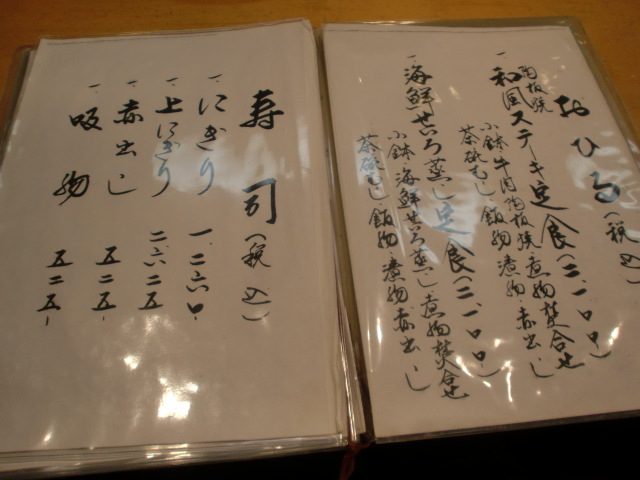 おひる（税込）
一 陶板焼
和風ステーキ定食（三、一〇〇）
小鉢 牛肉陶板焼 煮物焚合せ
茶碗むし・飯物・漬物・赤出し
一 海鮮せいろ蒸し定食（三、一〇〇）
小鉢 海鮮せいろ蒸し 煮物焚合せ
茶碗むし・飯物・漬物・赤出し
寿司（税込）
一 にぎり 一、二六〇
一 上にぎり 二、六二五
一 赤出し 五二五
一 吸物 五二五